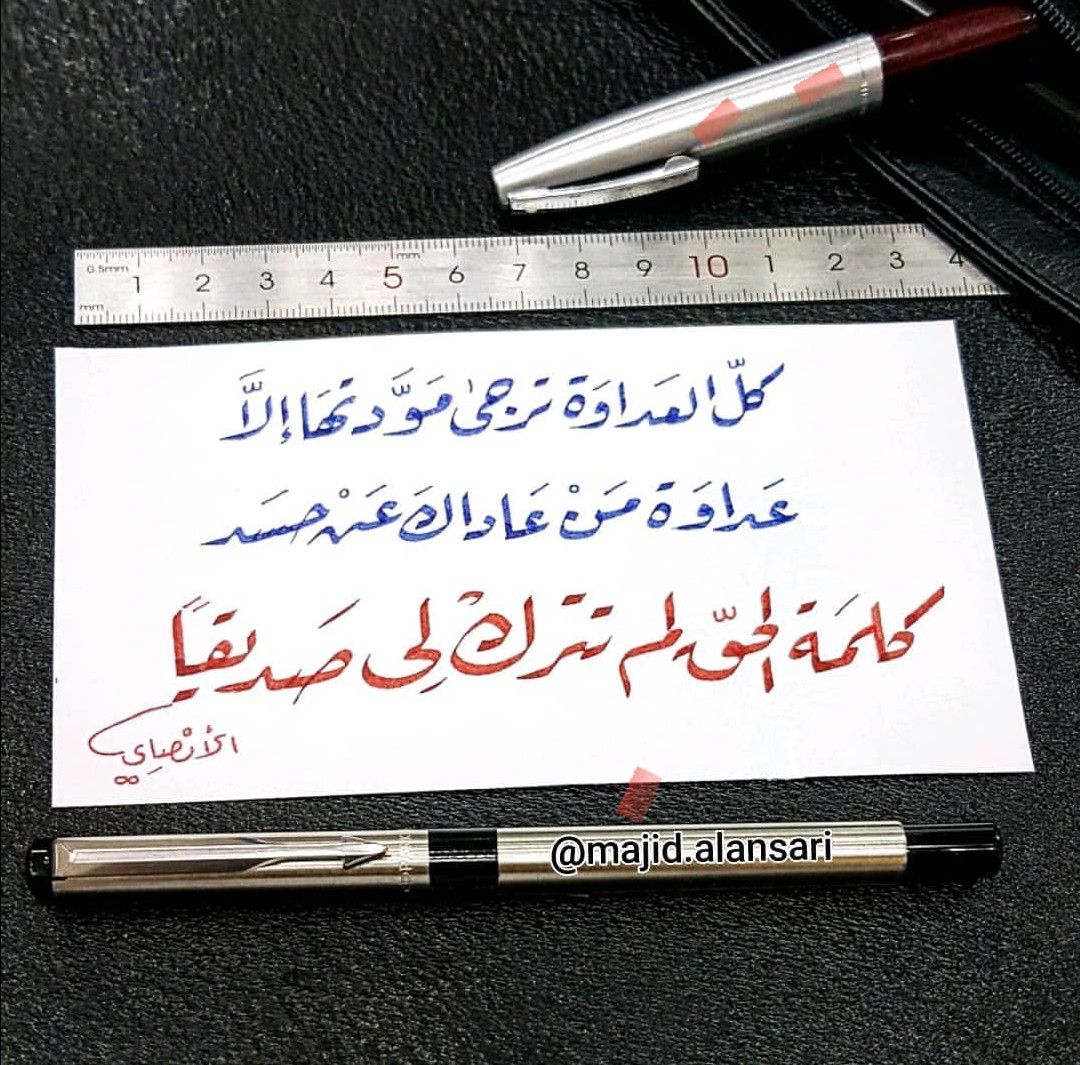 0.5mm 1 2 3 4 5 mm 6 7 8 9 10 1 2 3 4
mm
كلّ العداوَة ترجىٰ موَدّتهَا إلاَّ
عَداوَة مَنْ عَاداكَ عَنْ حسَد
كلمَة الحقّ لم تترك لي صَديقاً
الأنْصاري
@majid.alansari